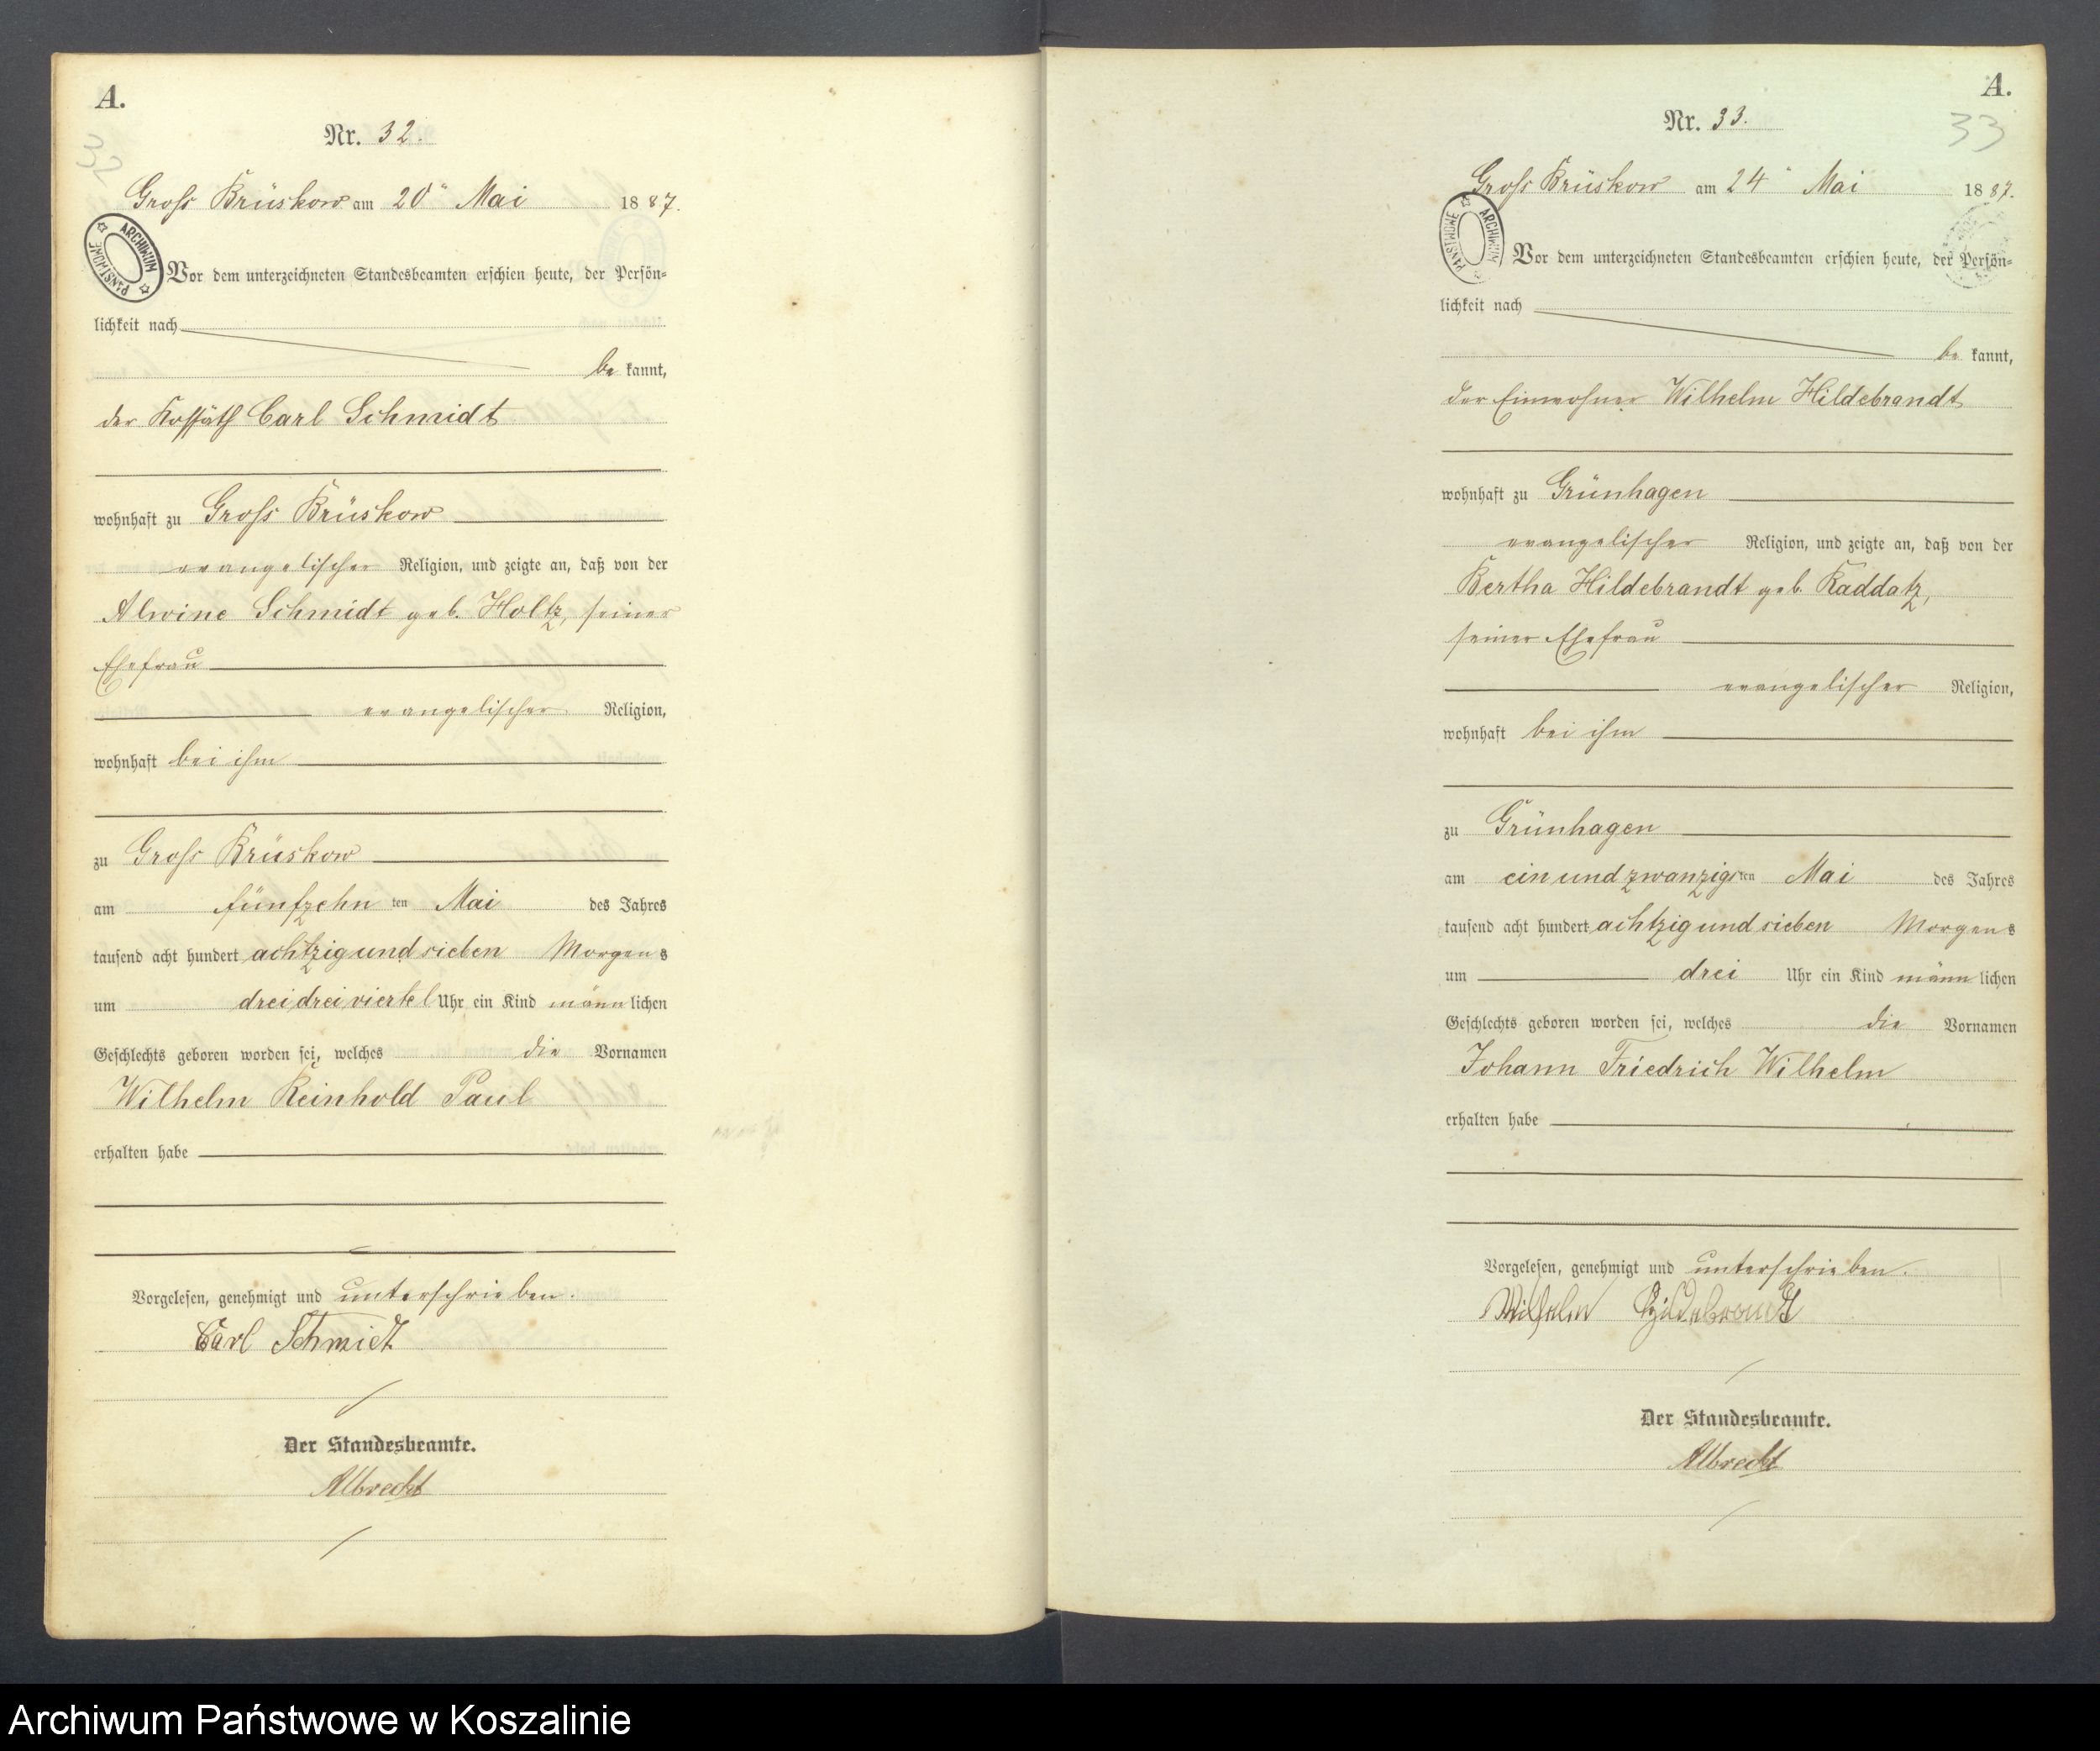 A.
Nr. 32.
32
Gross Brüskow am 20ⁿ Mai 1887.
ARCHIWUM PAŃSTWOWE
Vor dem unterzeichneten Standesbeamten erschien heute, der Persön=
lichkeit nach
be kannt,
der Kossäth Carl Schmidt
wohnhaft zu Gross Brüskow
evangelischer Religion, und zeigte an, daß von der
Alwine Schmidt geb. Holtz, seiner
Ehefrau
evangelischer Religion,
wohnhaft bei ihm
zu Gross Brüskow
am fünfzehn ten Mai des Jahres
tausend acht hundert achtzig und sieben Morgens
um drei drei viertel Uhr ein Kind männlichen
Geschlechts geboren worden sei, welches die Vornamen
Wilhelm Reinhold Paul
erhalten habe
Vorgelesen, genehmigt und unterschrieben.
Carl Schmidt
Der Standesbeamte.
Albrecht
A.
Nr. 33.
33
Gross Brüskow am 24 Mai 1887.
ARCHIWUM PAŃSTWOWE
Vor dem unterzeichneten Standesbeamten erschien heute, der Persön=
lichkeit nach
be kannt,
der Einwohner Wilhelm Hildebrandt
wohnhaft zu Grünhagen
evangelischer Religion, und zeigte an, daß von der
Bertha Hildebrandt geb. Raddatz,
seiner Ehefrau
evangelischer Religion,
wohnhaft bei ihm
zu Grünhagen
am ein und zwanzigsten Mai des Jahres
tausend acht hundert achtzig und sieben Morgens
um drei Uhr ein Kind männlichen
Geschlechts geboren worden sei, welches die Vornamen
Johann Friedrich Wilhelm
erhalten habe
Vorgelesen, genehmigt und unterschrieben.
Wilhelm Hildebrandt
Der Standesbeamte.
Albrecht
Archiwum Państwowe w Koszalinie